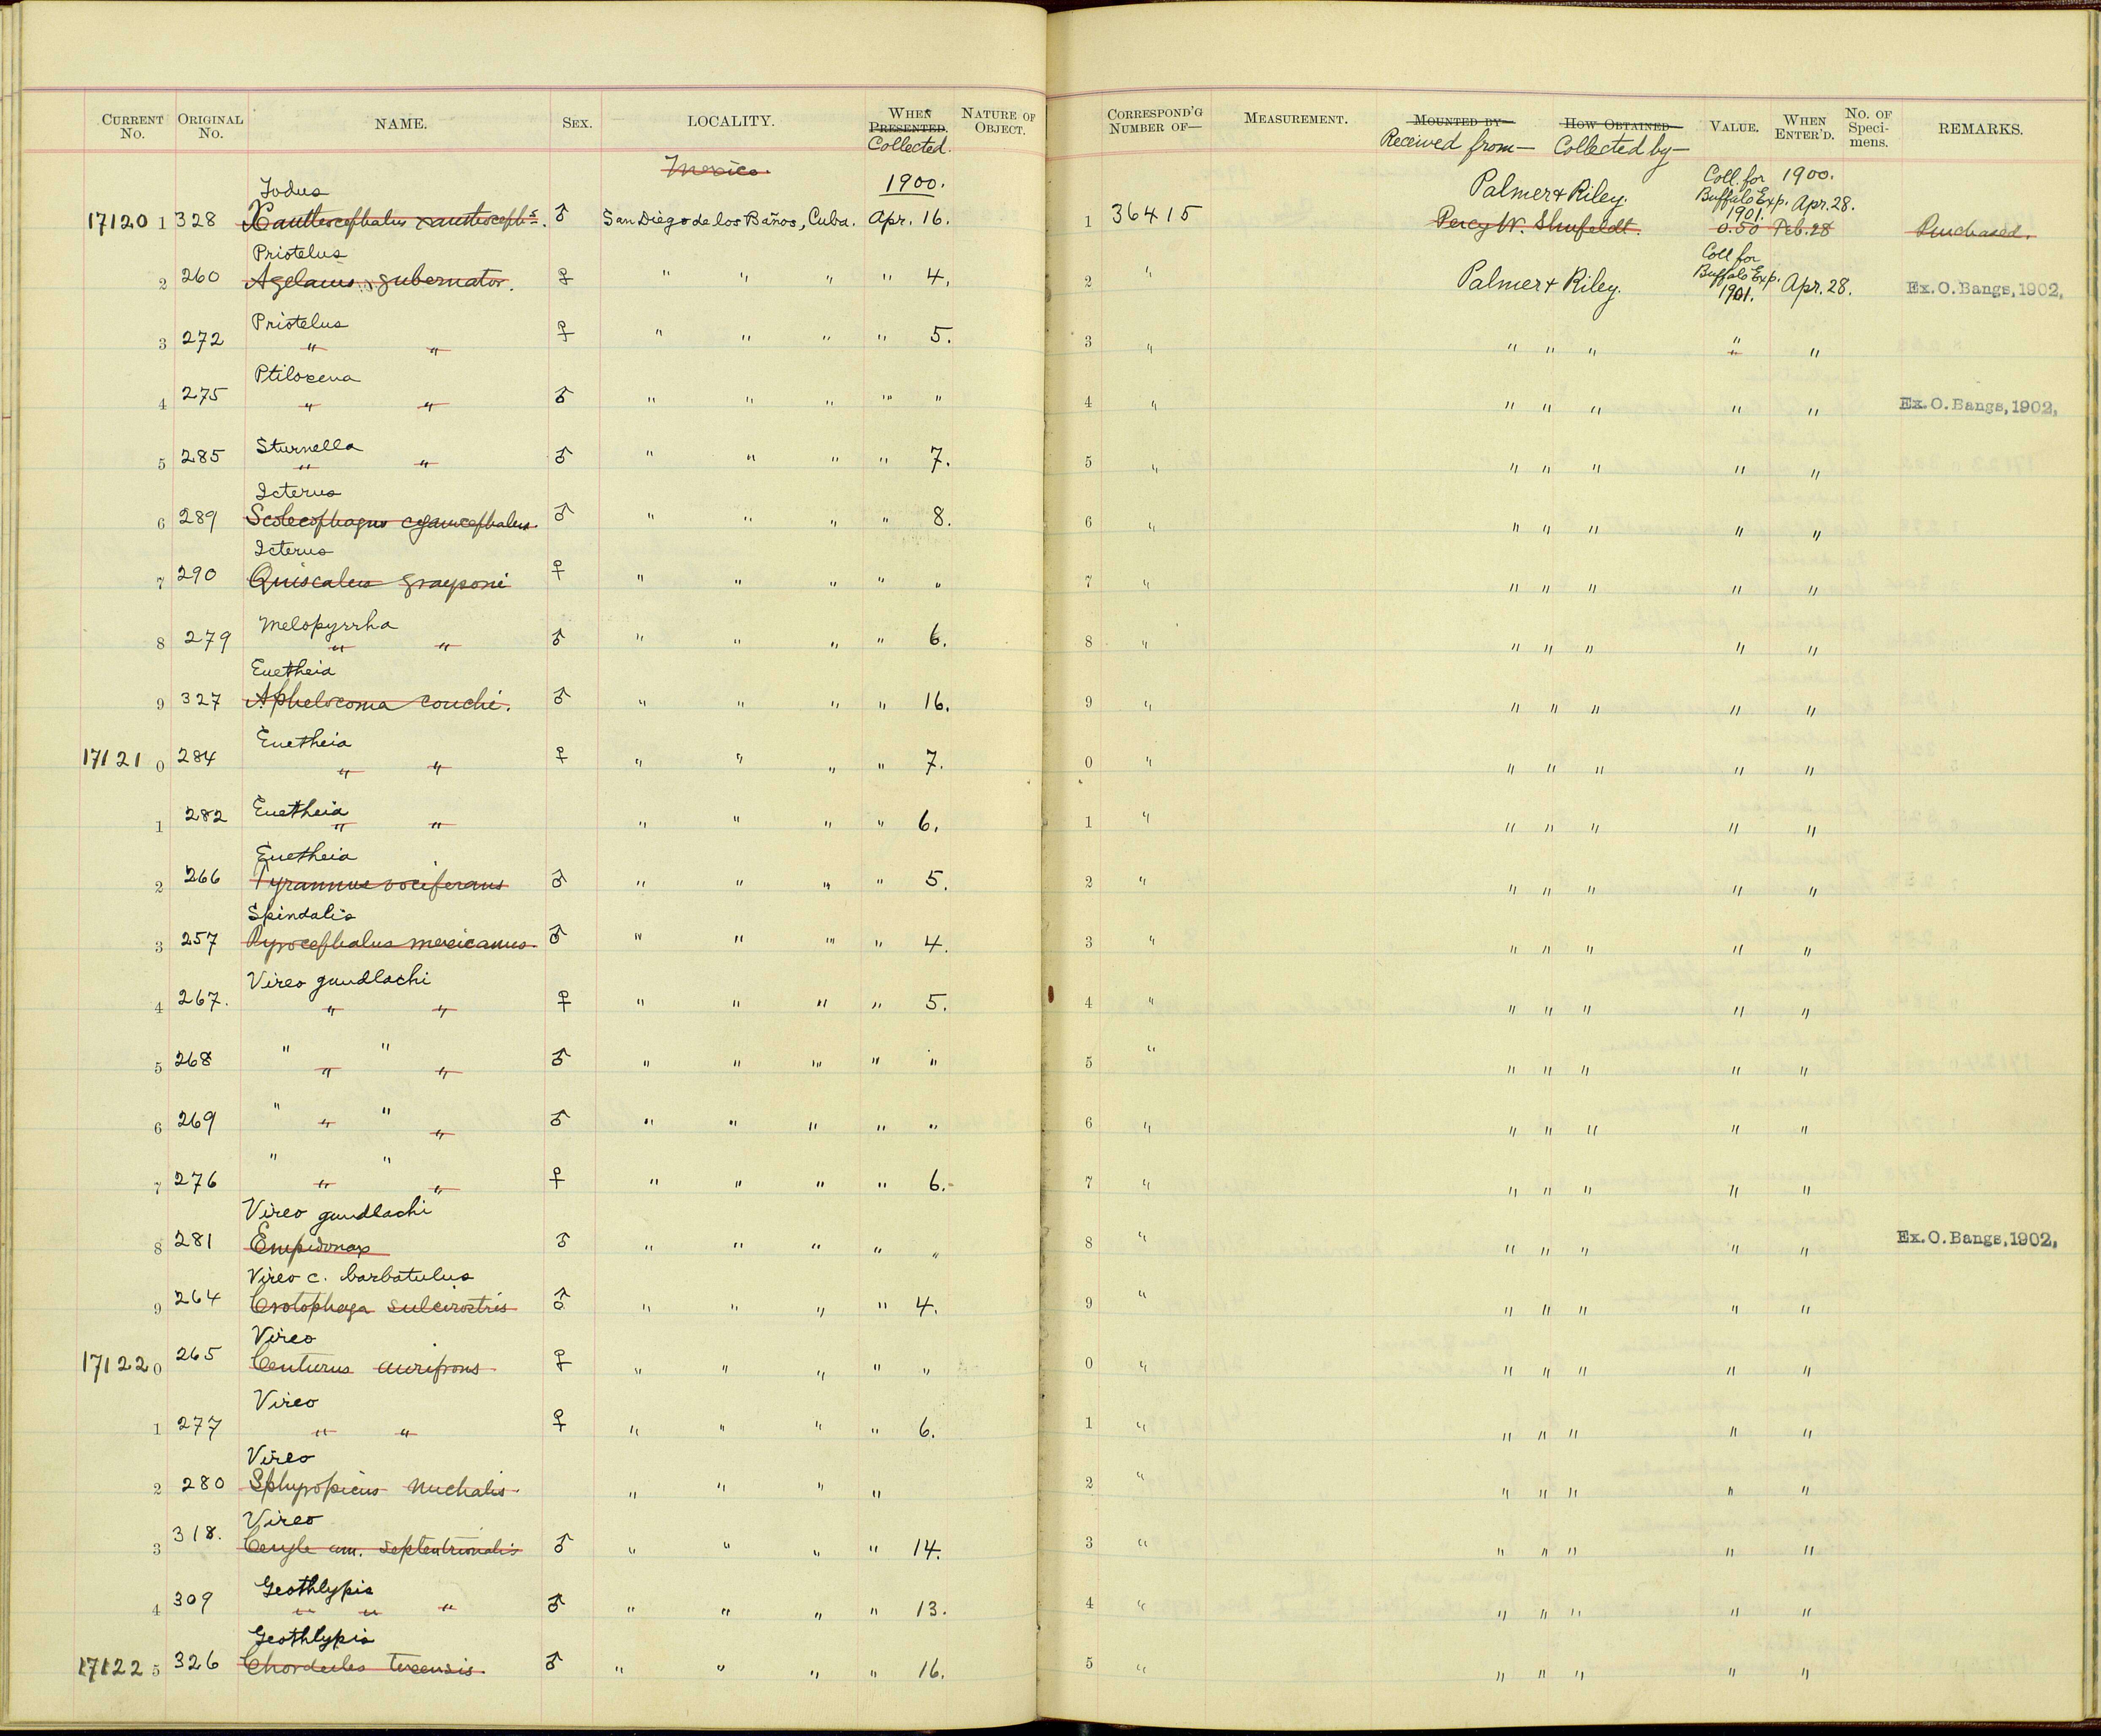 CURRENT No. ORIGINAL No. NAME. SEX. LOCALITY. WHEN PRESENTED. Collected. NATURE OF OBJECT. CORRESPOND'G NUMBER OF— MEASUREMENT. MOUNTED BY— Received from— HOW OBTAINED— Collected by— VALUE. WHEN ENTER'D. No. OF Speci- mens. REMARKS.
Mexico. 1900. Coll. for 1900.
Todus Palmer & Riley. Buffalo Exp. Apr. 28.
171201 328 Xanthocephalus xanthoceph s. ♂ San Diego de los Baños, Cuba. Apr. 16. 1 36415 Percy W. Shufeldt. 1901. 0.50 Feb. 28 Purchased.
Priotelus Coll for
2 260 Agelaius gubernator. ♀ " " " " 4. 2 " Palmer & Riley. Buffalo Exp. 1901. Apr. 28. Ex. O. Bangs, 1902,
Priotelus
3 272 " " ♀ " " " " 5. 3 " " " " " "
Ptiloxena
4 275 " " ♂ " " " " " 4 " " " " " " Ex. O. Bangs, 1902,
Sturnella
5 285 " " ♂ " " " " 7. 5 " " " " " "
Icterus
6 289 Scolecophagus cyanocephalus. ♂ " " " " 8. 6 " " " " " "
Icterus
7 290 Quiscalus graysoni ♀ " " " " " 7 " " " " " "
Melopyrrha
8 279 " " ♂ " " " " 6. 8 " " " " " "
Euetheia
9 327 Aphelocoma couchi. ♂ " " " " 16. 9 " " " " " "
Euetheia
171210 284 " " ♀ " " " " 7. 0 " " " " " "
Euetheia
1 282 " " " " " " 6. 1 " " " " " "
Euetheia
2 266 Tyrannus vociferans ♂ " " " " 5. 2 " " " " " "
Spindalis
3 257 Pyrocephalus mexicanus. ♂ " " " " 4. 3 " " " " " "
Vireo gundlachi
4 267. " " ♀ " " " " 5. 4 " " " " " "
" "
5 268 " " ♂ " " " " " 5 " " " " " "
" "
6 269 " " ♂ " " " " " 6 " " " " " "
" "
7 276 " " ♀ " " " " 6. 7 " " " " " "
Vireo gundlachi
8 281 Empidonax ♂ " " " " " 8 " " " " " " Ex. O. Bangs, 1902,
Vireo c. barbatulus
9 264 Crotophaga sulcirostris ♂ " " " " 4. 9 " " " " " "
Vireo
171220 265 Centurus aurifrons ♀ " " " " " 0 " " " " " "
Vireo
1 277 " " ♀ " " " " 6. 1 " " " " " "
Vireo
2 280 Sphyropicus nuchalis. " " " " 2 " " " " " "
Vireo
3 318. Ceryle am. septentrionalis ♂ " " " " 14. 3 " " " " " "
Geothlypis
4 309 " " " ♂ " " " " 13. 4 " " " " " "
Geothlypis
171225 326 Chordeiles texensis. ♂ " " " " 16. 5 " " " " " "